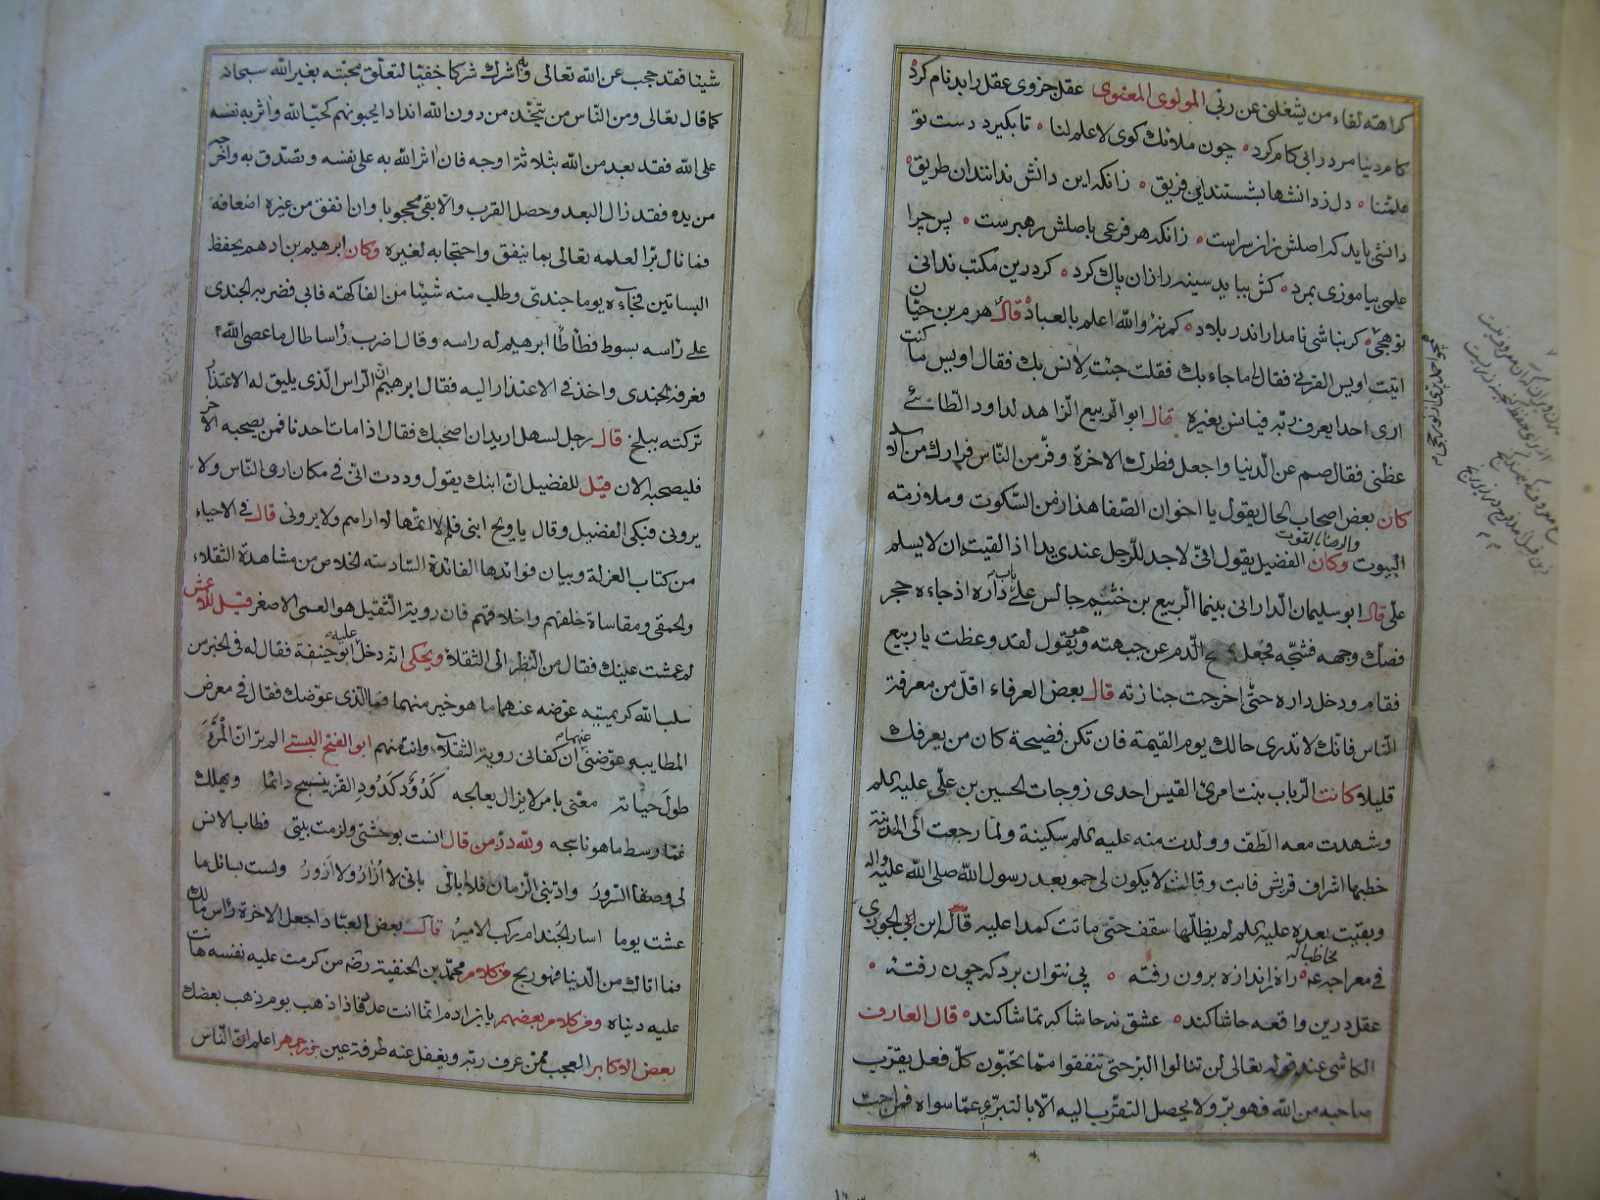 كراهته لقاء من يشغلني عن ربّي المولوي المعنوي عقل جزوی عقل را بدنام كرد
كام دنيا مرد را بی كام كرد چون ملائك كوی لا علم لنا تا بگيرد دست تو
علمتنا دل ز دانشها بشستند اين فريق زانكه اين دانش نداند آن طريق
دانشی بايد كه اصلش زان سر است زانكه هر فرعی باصلش رهبر است پس چرا
علمی بياموزی بمرد كش ببايد سينه را زان پاك كرد گر درين مكتب ندانی
تو هجی گر نباشی نامدار اندر بلاد كم نهٔ والله اعلم بالعباد قال هرم بن حيّان
اتيت اويس القرنی فقال لی ما جاء بك فقلت جئت لانس بك فقال اويس ما كنت
اری احدا يعرف ربّه فيانس بغيره قال ابو الربيع الزاهد لداود الطائی
عظنی فقال صم عن الدنيا واجعل فطرك الاخرة وفرّ من النّاس فرارك من الاسد
كان بعض اصحاب الحال يقول يا اخوان الصّفا هذا زمن السّكوت وملازمة
والرضا بالقوت
البيوت وكان الفضيل يقول انّی لاجد للرجل عندی يدا اذا لقينی ان لا يسلم
علیّ قال ابو سليمان الدارانی بينما الربيع بن خثيم جالس علی باب داره اذ جاءه حجر
فصكّ وجهه فشجّه فجعل يمسح الدّم عن جبهته وهو يقول لقد وعظت يا ربيع
فقام ودخل داره حتّی اخرجت جنازته قال بعض العرفاء اقلّ من معرفة
النّاس فانّك لا تدری حالك يوم القيمة فان تكن فضيحة كان من يعرفك
قليلا كانت الرّباب بنت امرئ القيس احدی زوجات الحسين بن علی عليه السلم
وشهدت معه الطّف وولدت منه عليه السلم سكينة ولمّا رجعت الی المدينة
خطبها اشراف قريش فابت وقالت لا يكون لی حمو بعد رسول الله صلی الله عليه واله
وبقيت بعده عليه السلم لم يظلّها سقف حتّی ماتت كمدا عليه قال ابن الجوزی
فی معراجه مخاطبا له راه ز اندازه برون رفتهٔ پی نتوان برد كه چون رفتهٔ
عقل درين واقعه حاشا كند عشق نه حاشا كه تماشا كند قال العارف
الكاشی عند قوله تعالی لن تنالوا البرّ حتّی تنفقوا ممّا تحبّون كلّ فعل يقرّب
صاحبه من الله فهو برّ ولا يحصل التقرّب اليه الّا بالتبرّی عمّا سواه فمن احبّ
شيئا فقد حجب عن الله تعالی واشرك شركا خفيّا لتعلّق محبّته بغير الله سبحانه
كما قال تعالی ومن النّاس من يتّخذ من دون الله اندادا يحبونهم كحبّ الله واثر به نفسه
علی الله فقد بعد من الله بثلاثة اوجه فان اثر الله به علی نفسه وتصدّق به واخرجه
من يده فقد زال البعد وحصل القرب والّا بقی محجوبا وان انفق من غيره اضعافه
فما نال برّا لعلمه تعالی بما ينفق واحتجابه لغيره وكان ابرهيم بن ادهم يحفظ
البساتين فجاءه يوما جندیّ وطلب منه شيئا من الفاكهة فابی فضربه الجندی
علی راسه بسوط فطأطأ ابرهيم له راسه وقال اضرب رأسا طال ما عصی الله
فعرفه الجندی واخذ فی الاعتذار اليه فقال ابرهيم انّ الراس الّذی يليق له الاعتذار
تركته ببلخ قال رجل لسهل اريد ان اصحبك فقال اذا مات احدنا فمن يصحبه الاخر
فليصحبه الان قيل للفضيل انّ ابنك يقول وددت انّی فی مكان اری النّاس ولا
يرونی فبكی الفضيل وقال يا ويح ابنی فلم لا اتمّها لا اراهم ولا يرونی قال فی الاحياء
من كتاب العزلة وبيان فوائدها الفائدة السّادسة الخلاص من مشاهدة الثقلاء
والحمقی ومقاساة خلقهم واخلاقهم فان روية الثقيل هو العمی الاصغر قيل للاعمش
لم عمشت عينك فقال من النّظر الی الثقلاء ويحكی انّه دخل عليه ابو حنيفة فقال له فی الخبر من
سلب الله كريمتيه عوّضه عنهما ما هو خير منهما فما الّذی عوّضك فقال فی معرض
المطايبه عوّضنی عنهما انه كفانی روية الثقلاء وانت منهم ابو الفتح البستی الم تر انّ المرء
طول حياته معنّی بامر لا يزال يعالجه كدود كدود القزّ ينسج دائما ويهلك
غمّا وسط ما هو ناسجه ولله درّ من قال انست بوحدتی ولزمت بيتی فطاب الانس
لی وصفا السّرور وادّبنی الزمان فلا ابالی بانی لا ازار ولا ازور ولست بسائل ما
عشت يوما اسار الجند ام ركب الامير قال بعض العبّاد اجعل الاخرة رأس مالك
فما اتاك من الدّنيا فهو ربح من كلام محمّد بن الحنفيّة رضه من كرمت عليه نفسه هانت
عليه دنياه ومن كلام بعضهم يابن ادم انّما انت عدد فاذا ذهب يوم ذهب بعضك
بعض الاكابر العجب ممّن عرف ربّه ويغفل عنه طرفة عين بوزرجمهر اعلم انّ النّاس